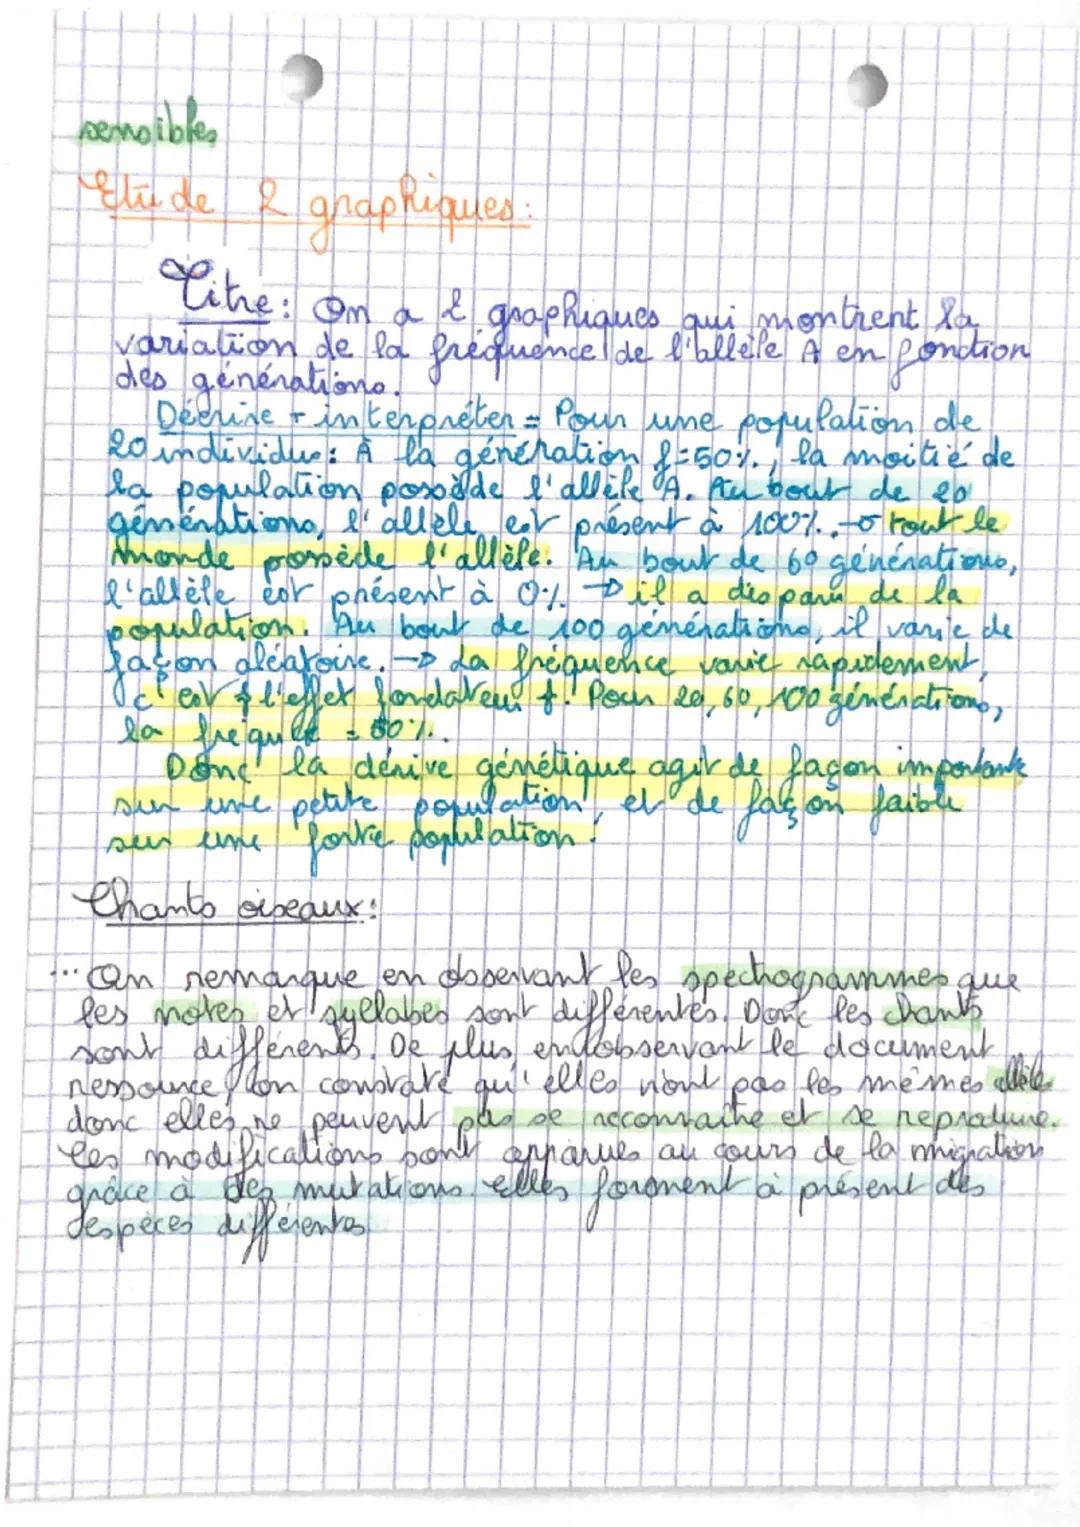 sensibles
Etude 2 graphiques :
Titre : On a 2 graphiques qui montrent la
variation de la fréquence de l'allèle A en fonction
des générations.
Décrire + interpréter = Pour une population de
20 individus : À la génération f=50%, la moitié de
la population possède l'allèle A. Au bout de 20
générations, l'allèle est présent à 100%. → tout le
monde possède l'allèle. Au bout de 60 générations,
l'allèle est présent à 0% → il a disparu de la
population. Au bout de 100 générations, il varie de
façon aléatoire. → La fréquence varie rapidement,
c'est l'effet fondateur ! Pour 20, 60, 100 générations,
la = 50%.
Donc la dérive génétique agit de façon importante
sur une petite population, et de façon faible
sur une forte population !
Chants oiseaux :
... On remarque en observant les spectrogrammes que
les notes et syllabes sont différentes. Donc les chants
sont différents. De plus, en observant le document
ressource, on constate qu'elles n'ont pas les mêmes allèles
donc elles ne peuvent pas se reconnaitre et se reproduire.
Les modifications sont apparues au cours de la migration
grâce à des mutations elles forment à présent des
espèces différentes